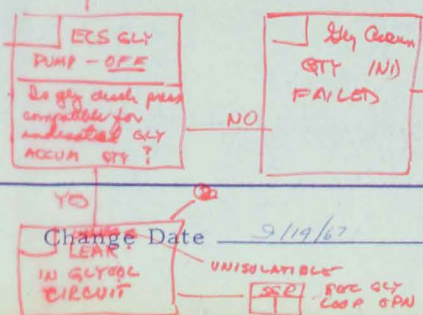 ECS GLY
PUMP - OFF
Do gly disch press
compatible for
indicated GLY
ACCUM QTY ?
NO
Gly Accum
QTY IND
FAILED
YES
Change Date 9/19/67
LEAK
IN GLYCOL
CIRCUIT
UNISOLATIBLE
SEC GLY
LOOP OPN